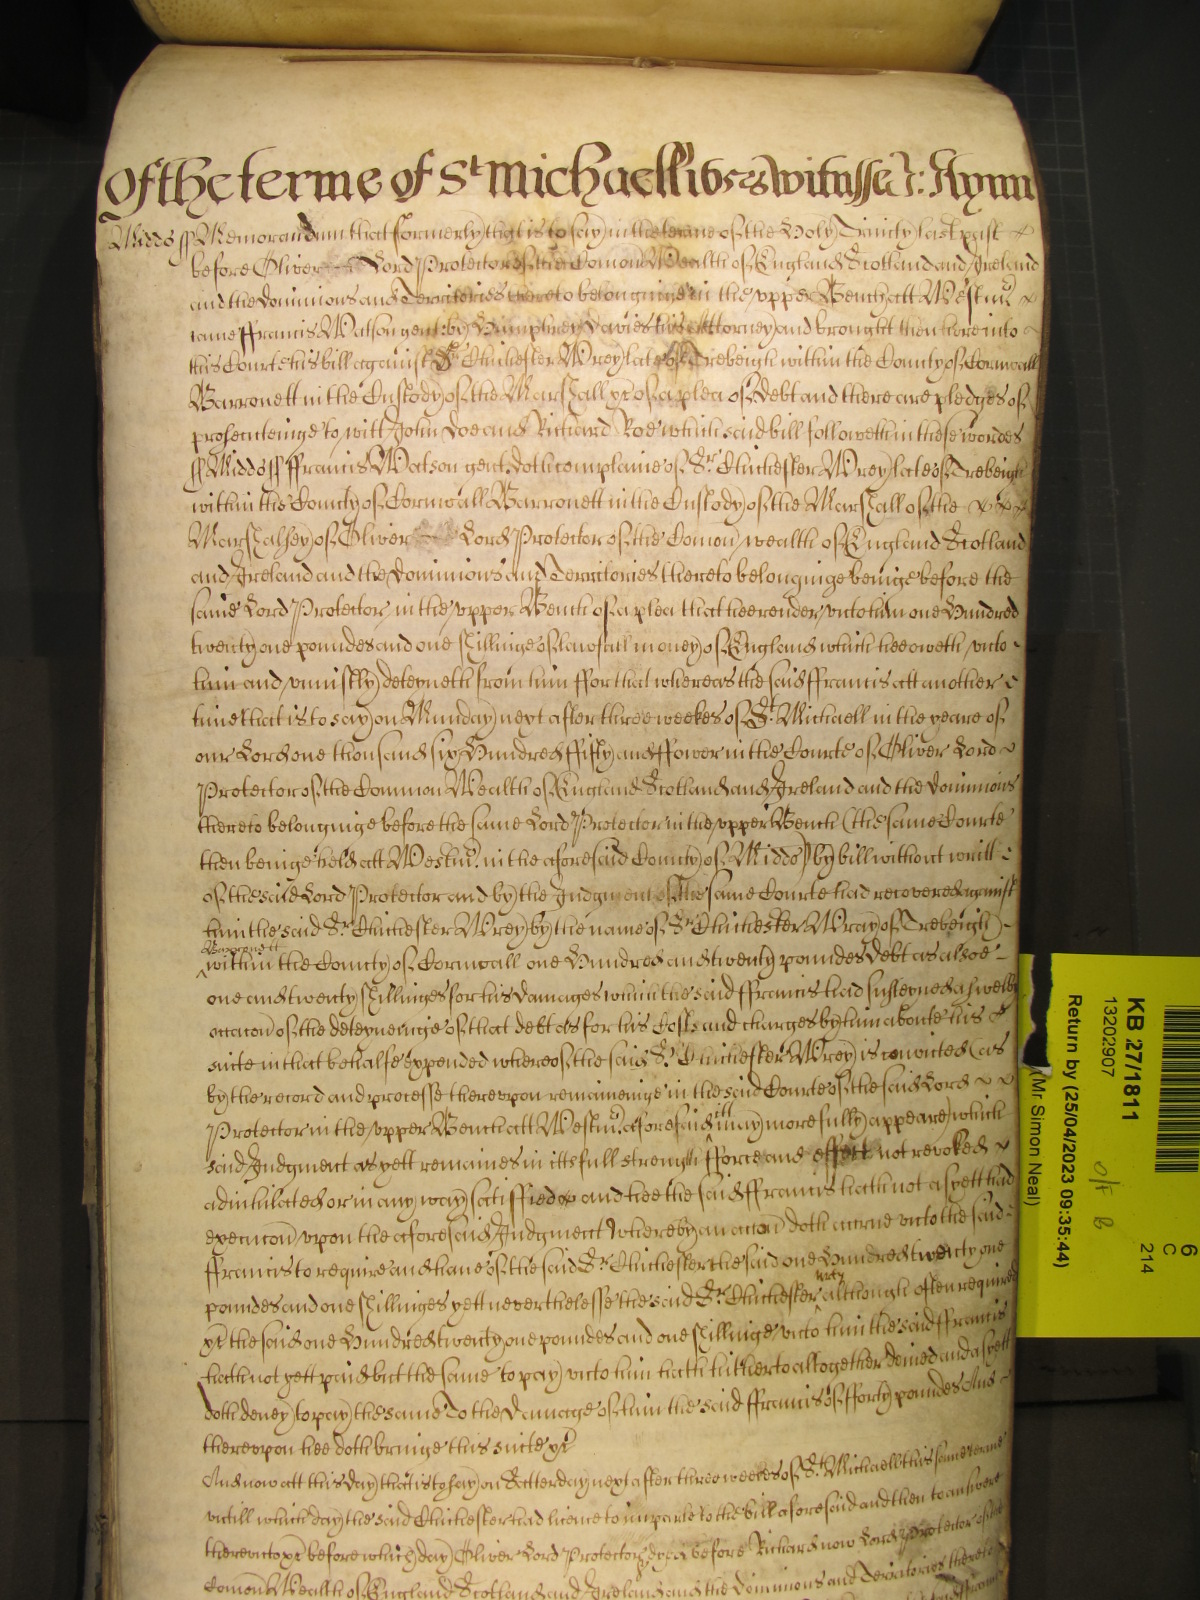 Of the terme of St Michaell 1658 witnesse J: Kynn
Midds ss Memorandum that formerly that is to say in the terme of the Holy Trinity last past
before Oliver Lord Protector of the Comon Wealth of England Scotland and Ireland
and the Dominions and Territories thereto belonginge in the vpper Bench att Westmr
came ffrancis Watson gent: by Humphrey Davies his Attorney and brought then here into
this Courte his bill against Sr Chichester Wrey late of Trebeigh within the County of Cornwall
Barronett in the Custody of the Marshall &c of a plea of Debt and there are pledges of
prosecuteinge to witt John Doe and Richard Roe which said bill followeth in these wordes
ss Midds ss ffrancis Watson gent. doth complaine of Sr Chichester Wrey late of Trebeigh
within the County of Cornwall Barronett in the Custody of the Marshall of the
Marshalsey of Oliver Lord Protector of the Comon wealth of England Scotland
and Ireland and the Dominions and Territories thereto belonginge beinge before the
same Lord Protector in the vpper Bench of a plea that hee render vnto him one Hundred
twenty one poundes and one shillinge of lawfull money of England which hee oweth vnto
him and vniustly deteyneth from him ffor that whereas the said ffrancis att another
time that is to say on Munday next after three weekes of St. Michaell in the yeare of
our Lord one thousand six Hundred ffifty and ffower in the Courte of Oliver Lord
Protector of the Common Wealth of England Scotland and Ireland and the Dominions
thereto belonginge before the same Lord Protector in the vpper Bench (the same Courte
then beinge held att Westmr. in the aforesaid County of Midds) by bill without writt
of the said Lord Protector and by the Judgment of the same Courte had recovered against
him the said Sr Chichester Wrey by the name of Sr Chichester Wray of Trebeigh
Barronett
within the County of Cornwall one Hundred and twenty poundes Debt as alsoe
one and twenty shillinges for his damages which the said ffrancis had susteyned aswell by
occacon of the deteyneinge of that debt as for his Costs and charges by him aboute his
suite in that behalfe expended whereof the said Sr Chichester Wrey is convicted (as
by the record and processe therevpon remaineinge in the said Courte of the said Lord
Protector in the vpper Bench att Westmr. aforesaid itt may more fully appeare) which
said Judgment as yett remaines in itts full strength fforce and effect not revoked
adnihilated or in any way satisffied and hee the said ffrancis hath not as yett had
execucon vpon the aforesaid Judgment Whereby an accon doth accrue vnto the said
ffrancis to require and haue of the said Sr Chichester the said one Hundred twenty one
poundes and one shillinges yett neverthelesse the said Sr Chichester Wrey although often required
&c the said one Hundred twenty one poundes and one shillinge vnto him the said ffrancis
hath not yett paid but the same to pay vnto him hath hitherto altogether denied and as yett
doth deney to pay the same To the Damage of him the said ffrancis of fforty poundes And
therevpon hee doth bringe this suite &c
And now att this day that is to say on Satterday next after three weekes of St. Michaell this same terme
vntill which day the said Chichester had licence to imparle to the bill aforesaid and then to answere
therevnto &c before which day Oliver Lord Protector dyed before Richard now Lord Protector of the
Comon Wealth of England Scotland and Ireland and the Dominions and Territories thereto
KB 27/1811
13202907
Return by (25/04/2023 09:35:44)
(Mr Simon Neal)
6
C
214